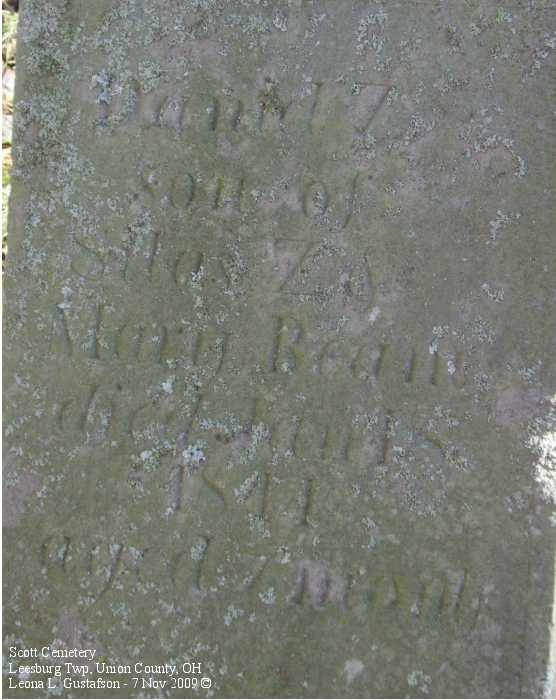 Daniel Z.
son of
Silas Z &
Mary Beam
died
1841
aged 7 mont
Scott Cemetery
Leesburg Twp, Union County, OH
Leona L. Gustafson - 7 Nov 2009 ©